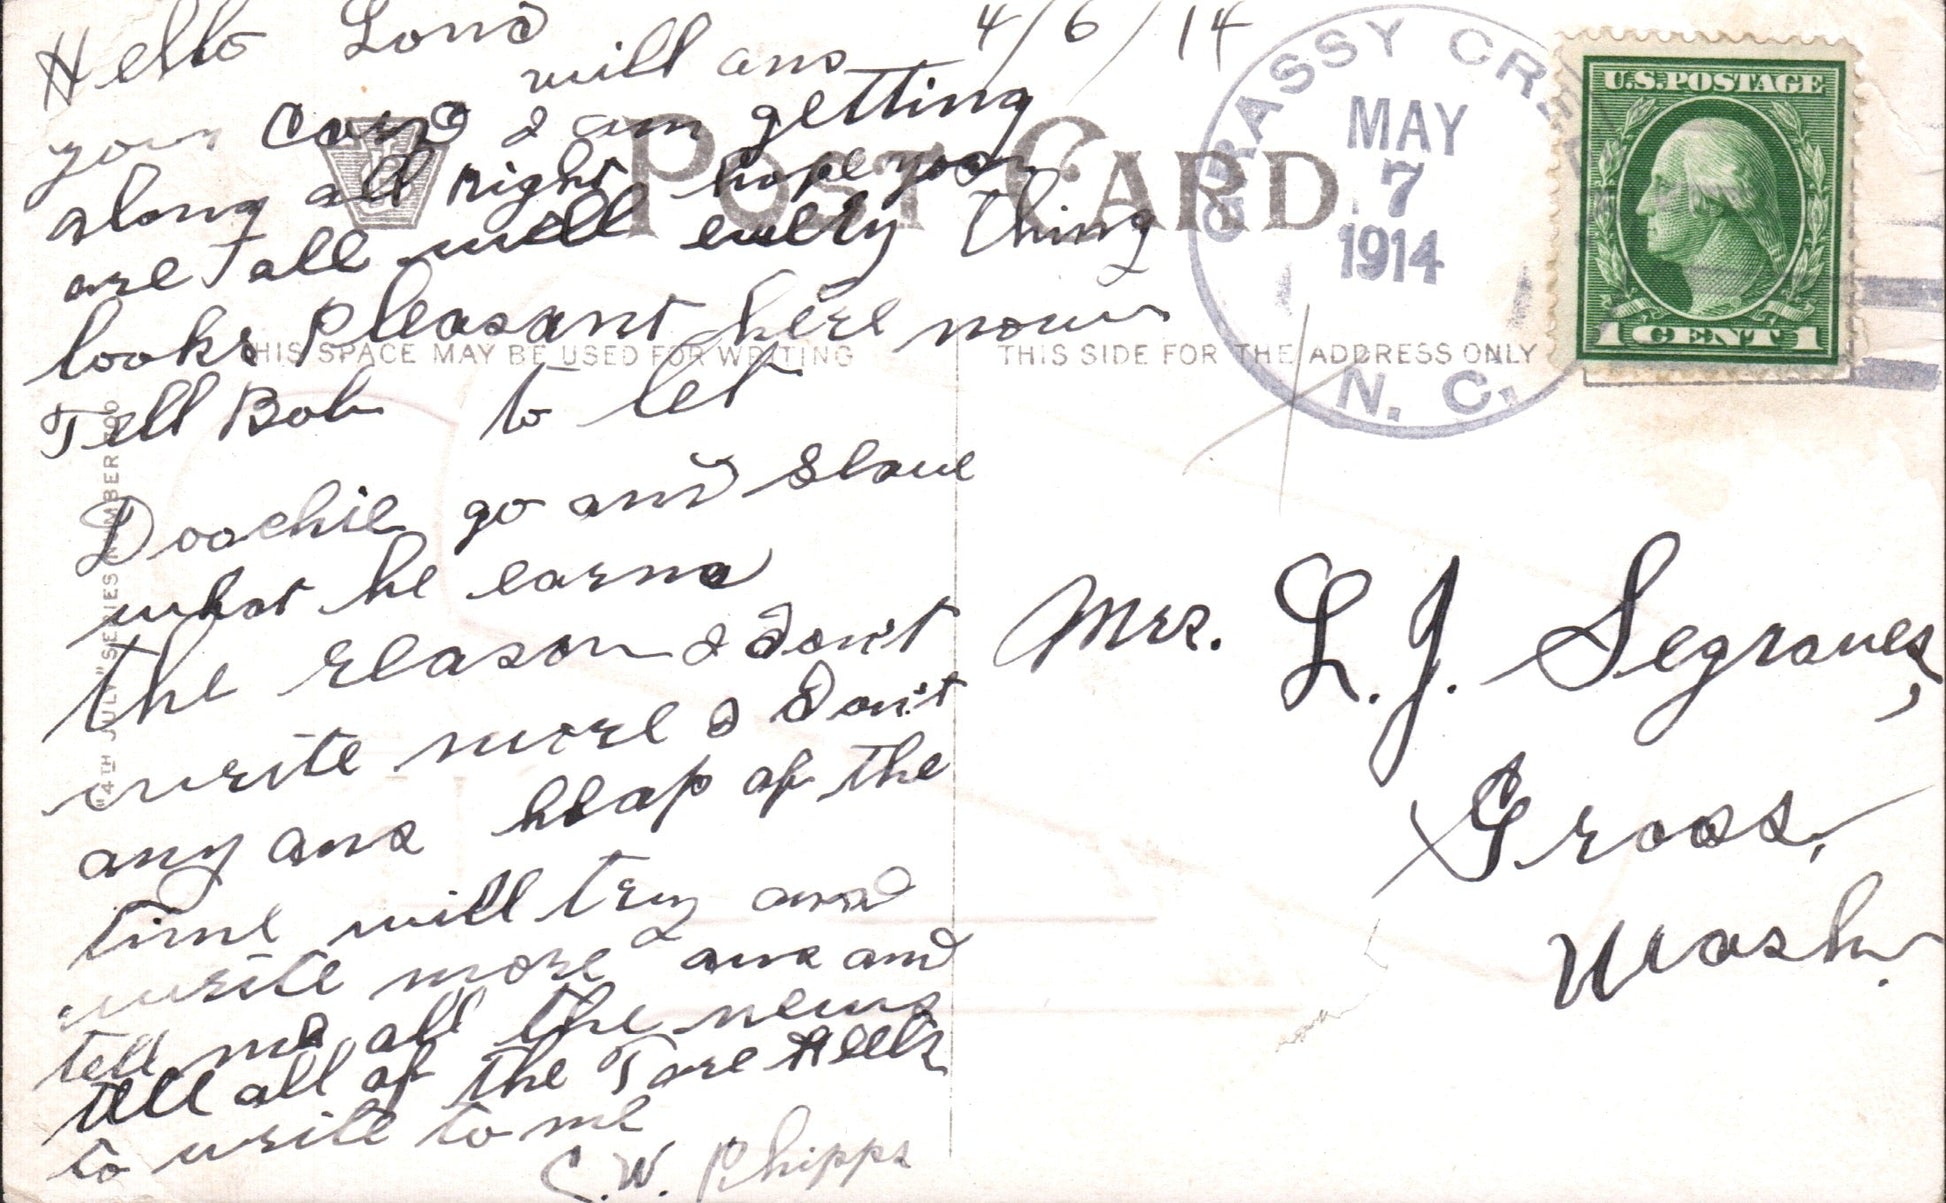 Hello Lond 4/6/14
will ans
your card I am getting
along all right hope you
are all well every thing
looks pleasant here now
Tell Bob to let
Doochie go and slave
what he earns
the reason I don't
write more I don't
any ans heap of the
time will try and
write more ans and
tell me all the news
tell all of the Tare Heels
to write to me
C. W. Phipps
POST CARD
THIS SPACE MAY BE USED FOR WRITING
THIS SIDE FOR THE ADDRESS ONLY
"4TH JULY" SERIES NUMBER
GRASSY CREEK
MAY
7
1914
N. C.
U.S. POSTAGE
1 CENT 1
Mrs. L. J. Segraves,
Gross,
Wash.